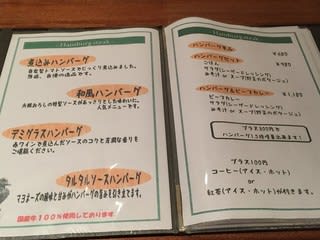 Hamburg steak
煮込みハンバーグ
自家製トマトソースでじっくり煮込みました。
当店、自慢の逸品です。
和風ハンバーグ
大根おろしの特製ソースがあっさりとした味わいに。
人気メニューです。
デミグラスハンバーグ
赤ワインで煮込んだソースのコクと芳醇な香りを
ご堪能ください。
タルタルソースハンバーグ
マヨネーズの酸味と甘みがハンバーグの旨みを引き立てます。
国産牛100%使用しております
Hamburg steak
ハンバーグ単品 ¥680
ハンバーグセット ¥980
ごはん
サラダ(シーザードレッシング)
みそ汁 or スープ(野菜のポタージュ)
ハンバーグ&ビーフカレー
ビーフカレー
サラダ(シーザードレッシング)
みそ汁 or スープ(野菜のポタージュ)
プラス300円で
ハンバーグ1.5倍増量出来ます!
プラス100円
コーヒー(アイス・ホット)
or
紅茶(アイス・ホット)が付きます。